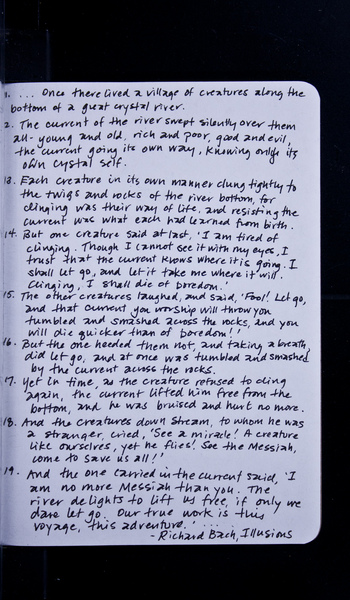 1. ... Once there lived a village of creatures along the
bottom of a great crystal river.
2. The current of the river swept silently over them
all- young and old, rich and poor, good and evil,
the current going its own way, knowing only its
own crystal self.
13. Each creature in its own manner clung tightly to
the twigs and rocks of the river bottom, for
clinging was their way of life, and resisting the
current was what each had learned from birth.
14. But one creature said at last, 'I am tired of
clinging. Though I cannot see it with my eyes, I
trust that the current knows where it is going. I
shall let go, and let it take me where it will.
Clinging, I shall die of boredom.'
15. The other creatures laughed, and said, 'Fool! Let go,
and that current you worship will throw you
tumbled and smashed across the rocks, and you
will die quicker than of boredom!'
16. But the one heeded them not, and taking a breath,
did let go, and at once was tumbled and smashed
by the current across the rocks.
17. Yet in time, as the creature refused to cling
again, the current lifted him free from the
bottom, and he was bruised and hurt no more.
18. And the creatures down stream, to whom he was
a stranger, cried, 'See a miracle! A creature
like ourselves, yet he flies! See the Messiah,
come to save us all!'
19. And the one carried in the current said, 'I
am no more Messiah than you. The
river delights to lift us free, if only we
dare let go. Our true work is this
voyage, this adventure.' ....
- Richard Bach, Illusions